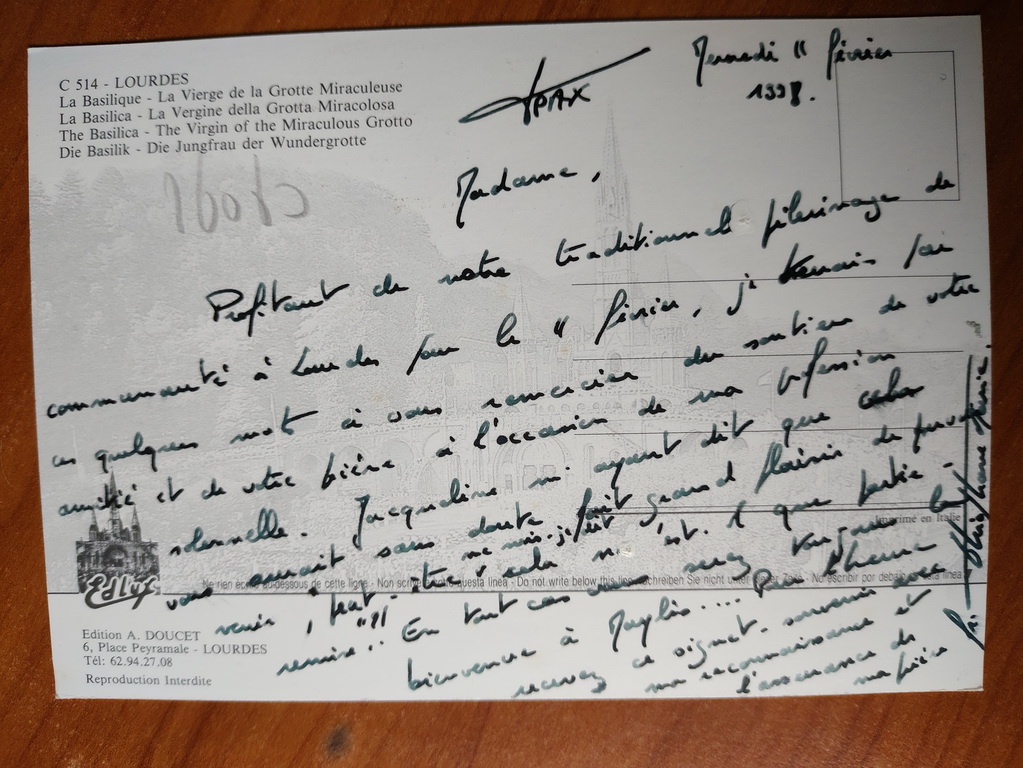 C 514 - LOURDES
La Basilique - La Vierge de la Grotte Miraculeuse
La Basilica - La Vergine della Grotta Miracolosa
The Basilica - The Virgin of the Miraculous Grotto
Die Basilik - Die Jungfrau der Wundergrotte
PAX
Mercredi 11 février
1998.
Madame,
Profitant de notre traditionnel pèlerinage de
communauté à Lourdes pour le 11 février, je tenais par
ces quelques mots à vous remercier du soutien de votre
amitié et de votre prière à l'occasion de ma profession
solennelle. Jacqueline m'ayant dit que cela
vous aurait sans doute fait grand plaisir de pouvoir
venir, peut-être cela n'est que partie
remise!! En tout cas vous serez toujours la
bienvenue à Maylis.... Pour l'heure
recevez ce signet-souvenir avec
ma reconnaissance et
l'assurance de
ma prière
fr.
Imprimé en Italie
Ne rien écrire au-dessous de cette ligne - Non scrivere sotto questa linea - Do not write below this line - Schreiben Sie nicht unter - No escribir por debajo esta linea
Edlys
Edition A. DOUCET
6, Place Peyramale - LOURDES
Tél: 62.94.27.08
Reproduction Interdite